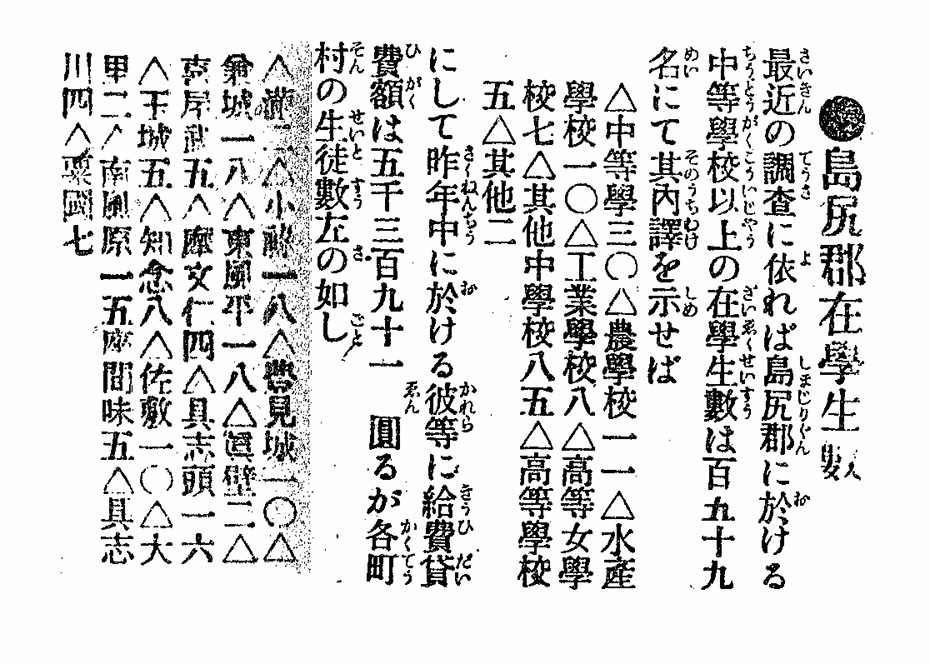 ●島尻郡在學生數
最近の調査に依れば島尻郡に於ける
中等學校以上の在學生數は百九十九
名にて其內譯を示せば
△中等學三〇△農學校一一△水産
學校一〇△工業學校八△高等女學
校七△其他中學校八五△高等學校
五△其他二
にして昨年中に於ける彼等に給費貸
費額は五千三百九十一圓るが各町
村の生徒數左の如し
△小祿一八△豐見城一〇△
兼城一八△東風平一八△眞壁二△
喜屋武五△摩文仁四△具志頭一六
△玉城五△知念八△佐敷一〇△大
里二△南風原一五座間味五△具志
川四△粟國七